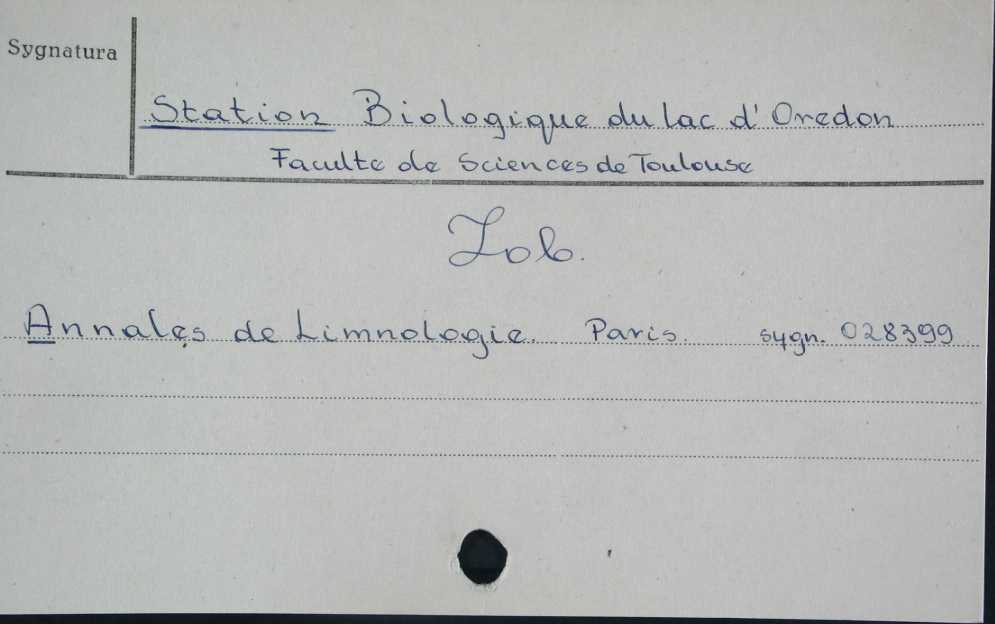 Sygnatura
Station Biologique du lac d'Oredon
Faculte de Sciences de Toulouse
Zob.
Annales de Limnologie. Paris. sygn. 028399